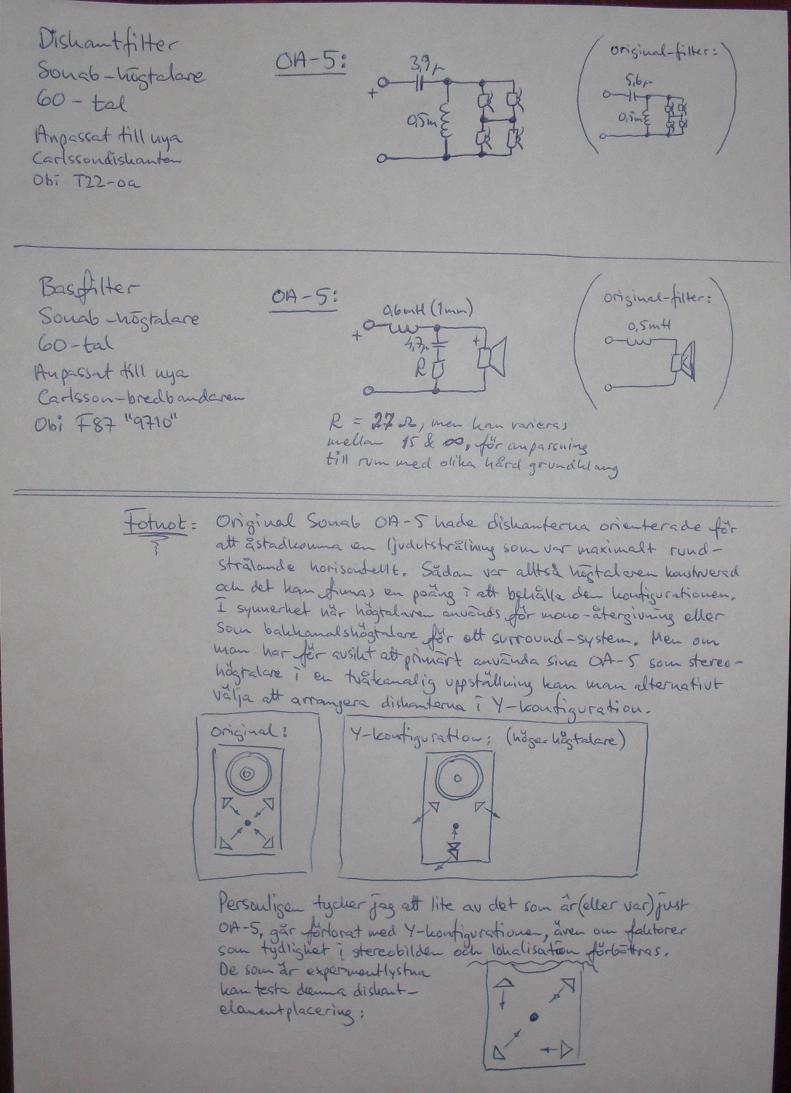 Diskantfilter
Sonab-högtalare
60-tal
Anpassat till nya
Carlssondiskanten
Obi T22-oa
OA-5:
3,9µ
+
0,5m
original-filter:
5,6µ
0,5m
Basfilter
Sonab-högtalare
60-tal
Anpassat till nya
Carlsson-bredbandaren
Obi F87 "9710"
OA-5:
0,6mH (1mm)
+
4,7µ
+
R
R = 27 Ω, men kan varieras
mellan 15 & ∞, för anpassning
till rum med olika hård grundklang
original-filter:
0,5mH
Fotnot:
Original Sonab OA-5 hade diskanterna orienterade för
att åstadkomma en ljudutstrålning som var maximalt rund-
strålande horisontellt. Sådan var alltså högtalaren konstruerad
och det kan finnas en poäng i att behålla den konfigurationen.
I synnerhet när högtalaren används för mono-återgivning eller
som bakkanalshögtalare för ett surround-system. Men om
man har för avsikt att primärt använda sina OA-5 som stereo-
högtalare i en tvåkanalig uppställning kan man alternativt
välja att arrangera diskanterna i Y-konfiguration.
Original:
Y-konfiguration: (höger högtalare)
Personligen tycker jag att lite av det som är (eller var) just
OA-5, går förlorat med Y-konfigurationen, även om faktorer
som tydlighet i stereobilden och lokalisation förbättras.
De som är experimentlystna
kan testa denna diskant-
elementplacering: